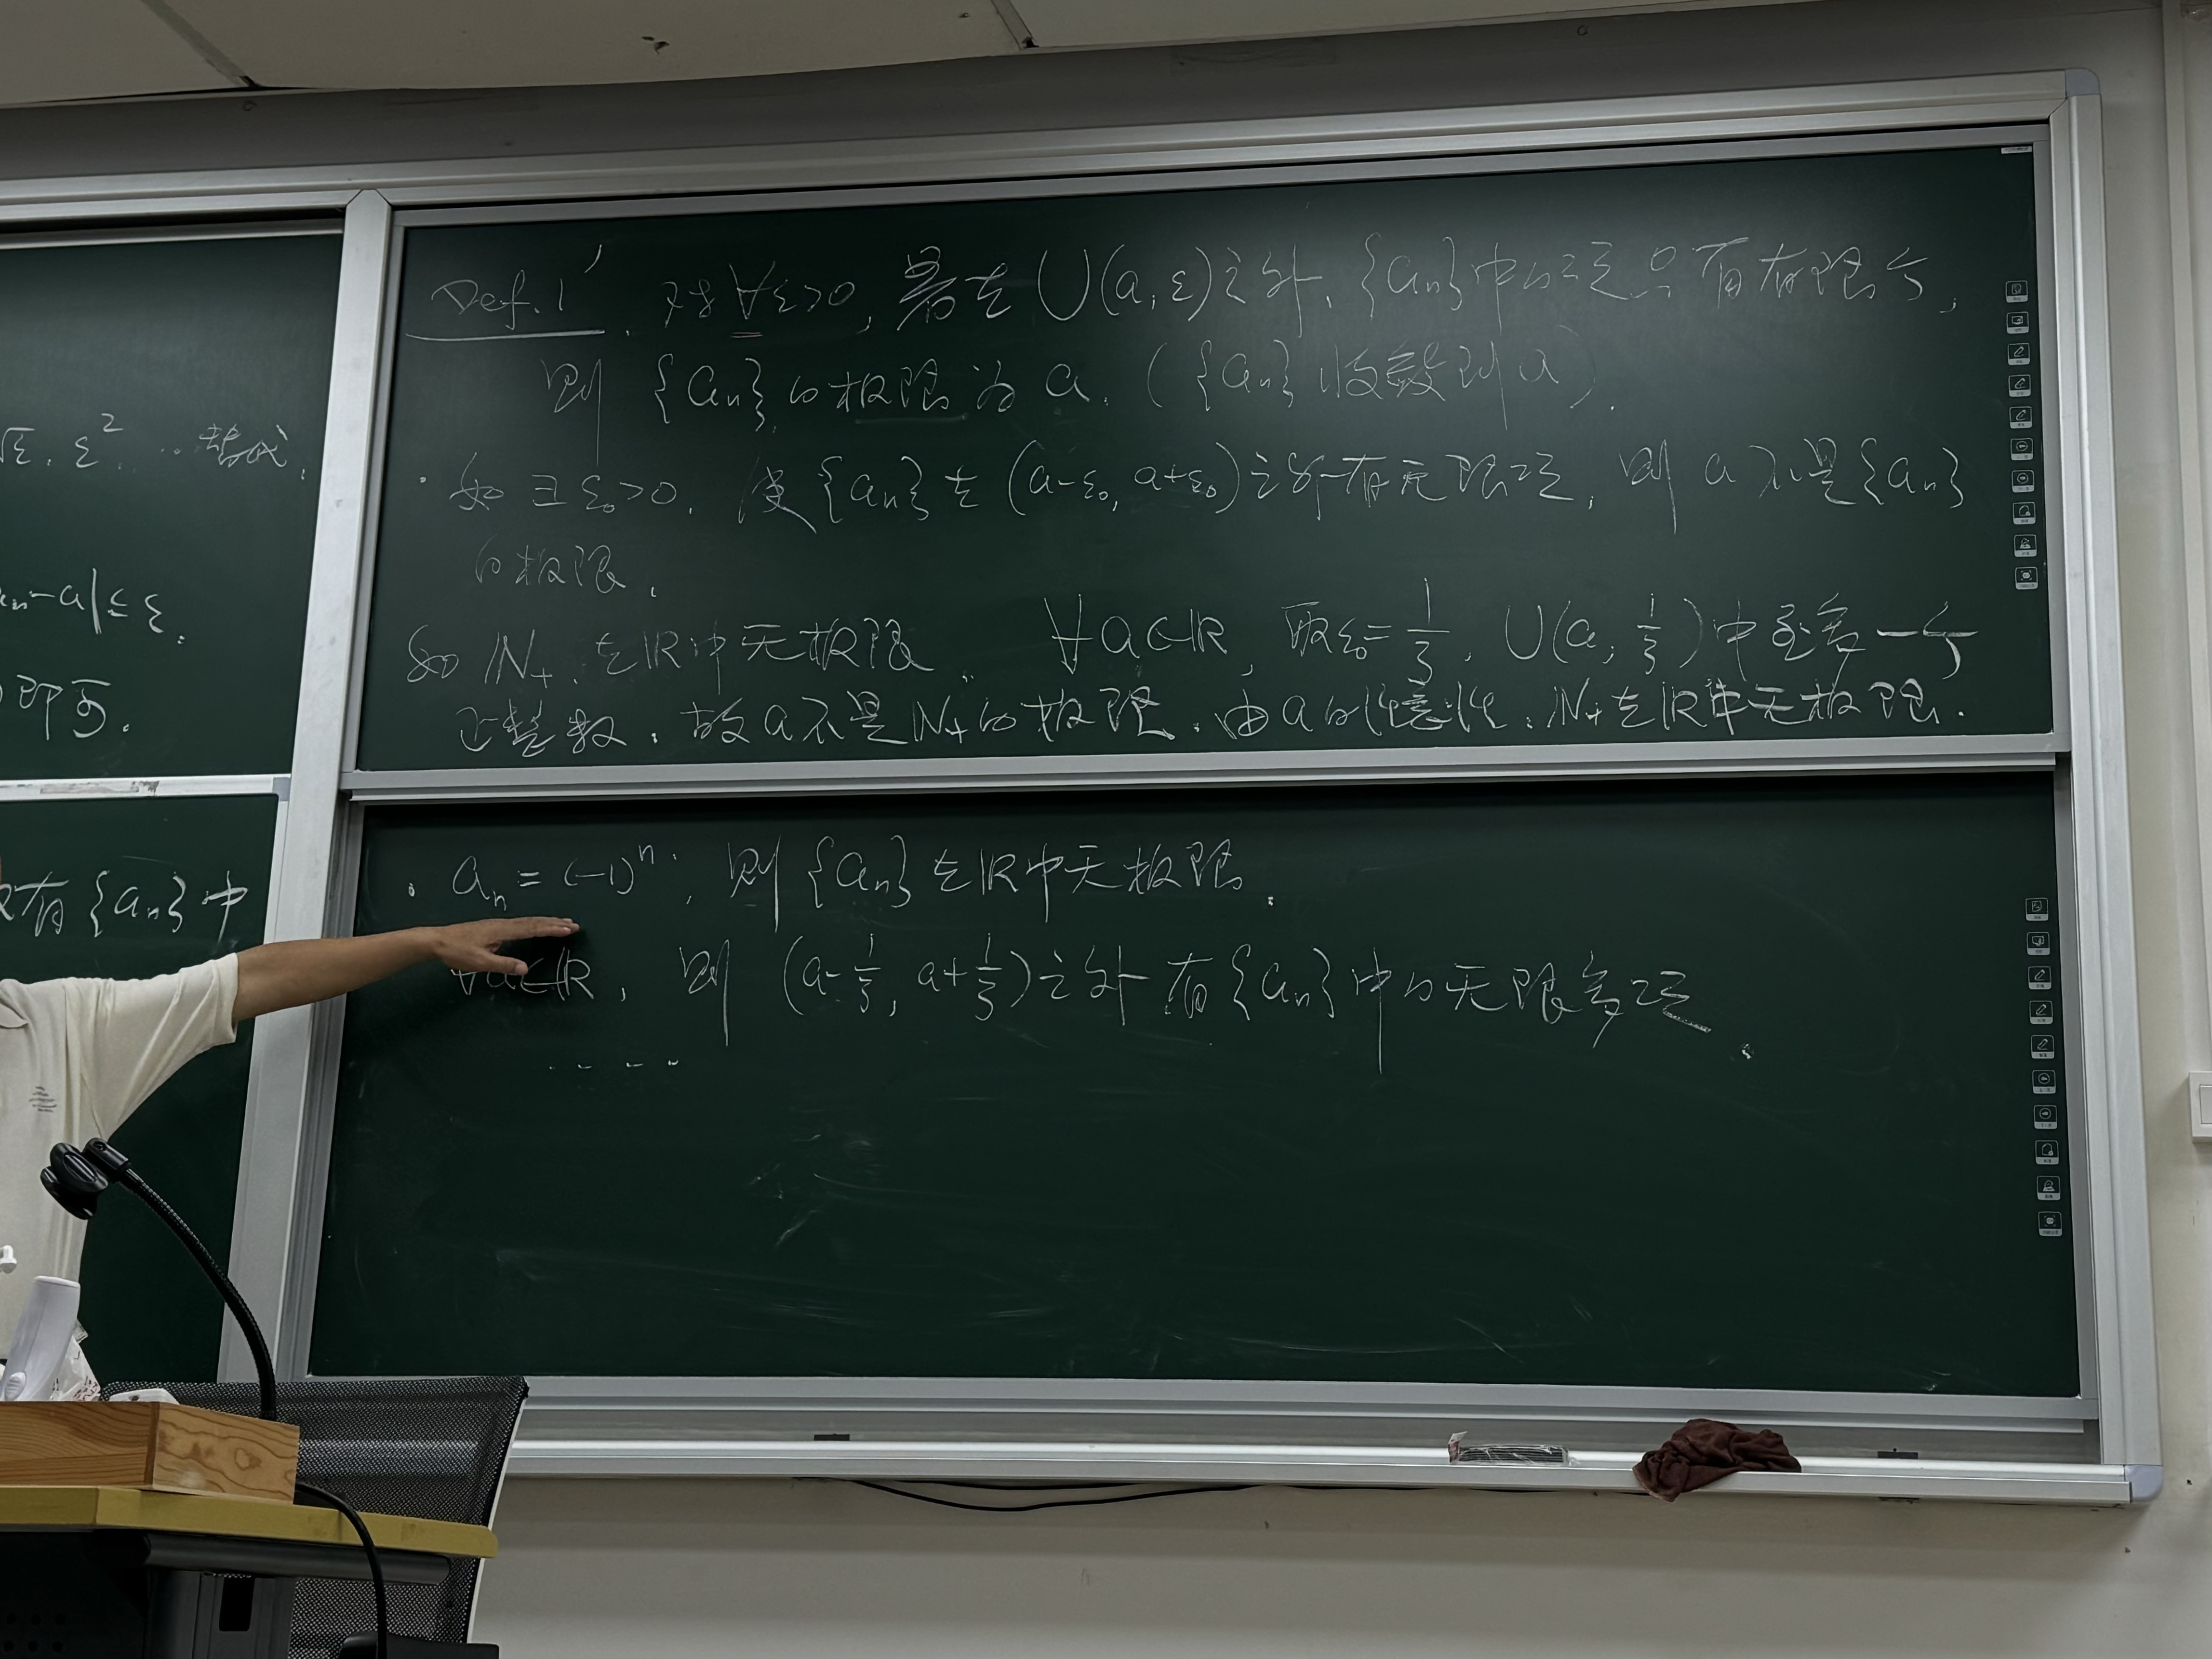 √ε, ε² … 替代.
aₙ-a|≤ε.
即可.
有{aₙ}中
Def.1′. 对∀ε>0, 若在U(a,ε)之外, {aₙ}中的项只有有限个,
则{aₙ}的极限为a. ({aₙ}收敛到a).
· 如∃ε₀>0, 使{aₙ}在(a-ε₀, a+ε₀)之外有无限项, 则a不是{aₙ}
的极限.
如N₊在R中无极限. ∀a∈R, 取ε₀=1/3, U(a, 1/3)中至多一个
正整数. 故a不是N₊的极限. 由a的任意性, N₊在R中无极限.
· aₙ=(-1)ⁿ, 则{aₙ}在R中无极限.
∀a∈R, 则(a-1/3, a+1/3)之外有{aₙ}中的无限多项.
....